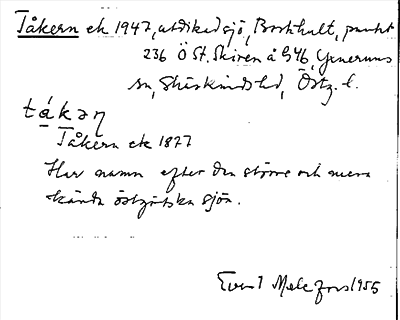 Tåkern ek 1947, utdikad sjö, Borkhult, punkt
236 Ö St. Skiren å G46, Yxnerums
sn, Skärkinds hd, Östg. l.
tákəņ
Tåkern ek 1877
Har namn efter den större och mera
kända östgötska sjön.
Evert Melefors 1955